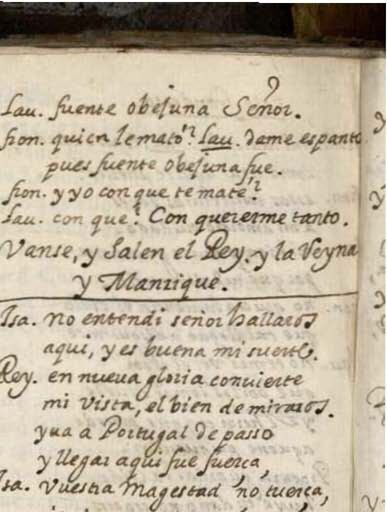 Lau. fuente obejuna Señor.
fron. quien le mató? Lau. dame espanto
pues fuente obejuna fue.
fron. y yo con que te maté?
Lau. con que? Con quererme tanto.
Vanse, y Salen el Rey. y la Reyna
y Manrique.
Isa. no entendi señor hallaros
aqui, y es buena mi suerte.
Rey. en nueva gloria convierte
mi vista, el bien de miraros.
yva a Portugal de passo
y llegar aqui fue fuerça,
Isa. Vuestra Magestad no tuerça,